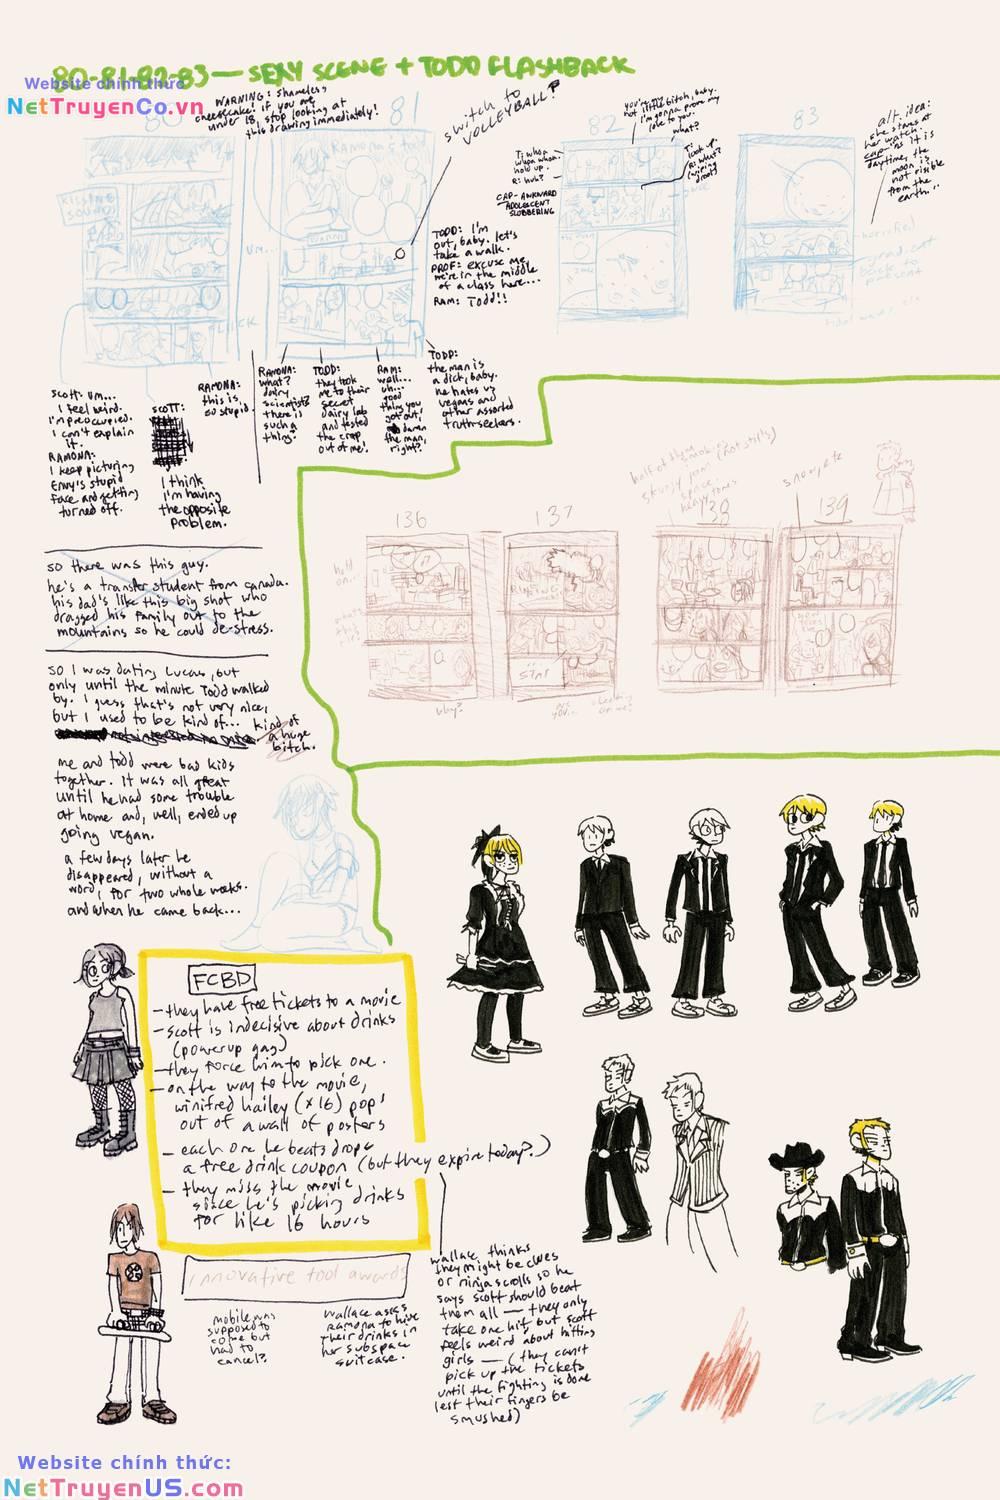 80-81-82-83 — SEXY SCENE + TODD FLASHBACK
Website chính thức
NetTruyenCo.vn
WARNING: shameless
cheesecake! if you are
under 18, stop looking at
this drawing immediately!
81
switch to
VOLLEYBALL?
82
83
T: whoa
whoa whoa.
hold up.
R: huh?
CAP- AWKWARD
ADOLESCENT
SLOBBERING
what?
T:
look up.
R: what?
(wiping
drool)
alt. idea:
she stares at
her watch.
cap- "as it is
daytime, the
moon is
not visible
from the
earth..
KISSING
SOUND
UM...
horrified
TODD: I'm
out, baby. let's
take a walk.
PROF: excuse me,
we're in the middle
of a class here...
RAM: Todd!!
RAMONA:
this is
so stupid.
scott: um...
I feel weird.
I'm preoccupied.
I can't explain
it.
RAMONA:
I keep picturing
Envy's stupid
face and getting
turned off.
SCOTT:
I think
I'm having
the opposite
problem.
RAMONA:
what?
dairy
scientists?
there is
such a
thing?
TODD:
they took
me to their
secret
dairy lab
and tested
the crap
out of me!
RAM:
well...
uh...
good
thing you
got out,
damn
the man,
right?
TODD:
the man is
a dick, baby.
he hates us
vegans and
other assorted
truth-seekers.
so there was this guy.
he's a transfer student from canada.
his dad's like this big shot who
dragged his family out to the
mountains so he could de-stress.
so I was dating Lucas, but
only until the minute Todd walked
by. I guess that's not very nice,
but I used to be kind of... kind of
a huge
bitch.
me and todd were bad kids
together. it was all great
until he had some trouble
at home and, well, ended up
going vegan.
a few days later he
disappeared, without a
word, for two whole weeks.
and when he came back...
136
137
138
139
hold
on...
why?
FCBD
- they have free tickets to a movie
- scott is indecisive about drinks
(powerup gag)
- they force him to pick one.
- on the way to the movie,
winifred hailey (x16) pop
out of a wall of posters
- each one he beats drops
a free drink coupon (but they expire today?)
- they miss the movie
since he's picking drinks
for like 16 hours
innovative tool awards
mobile was
supposed to
come but
had to
cancel?
wallace asks
ramona to have
their drinks in
her subspace
suitcase.
wallace thinks
they might be clues
or ninja scrolls so he
says scott should beat
them all — they only
take one hit, but scott
feels weird about hitting
girls — (they can't
pick up the tickets
until the fighting is done
lest their fingers be
smushed)
Website chính thức:
NetTruyenUS.com